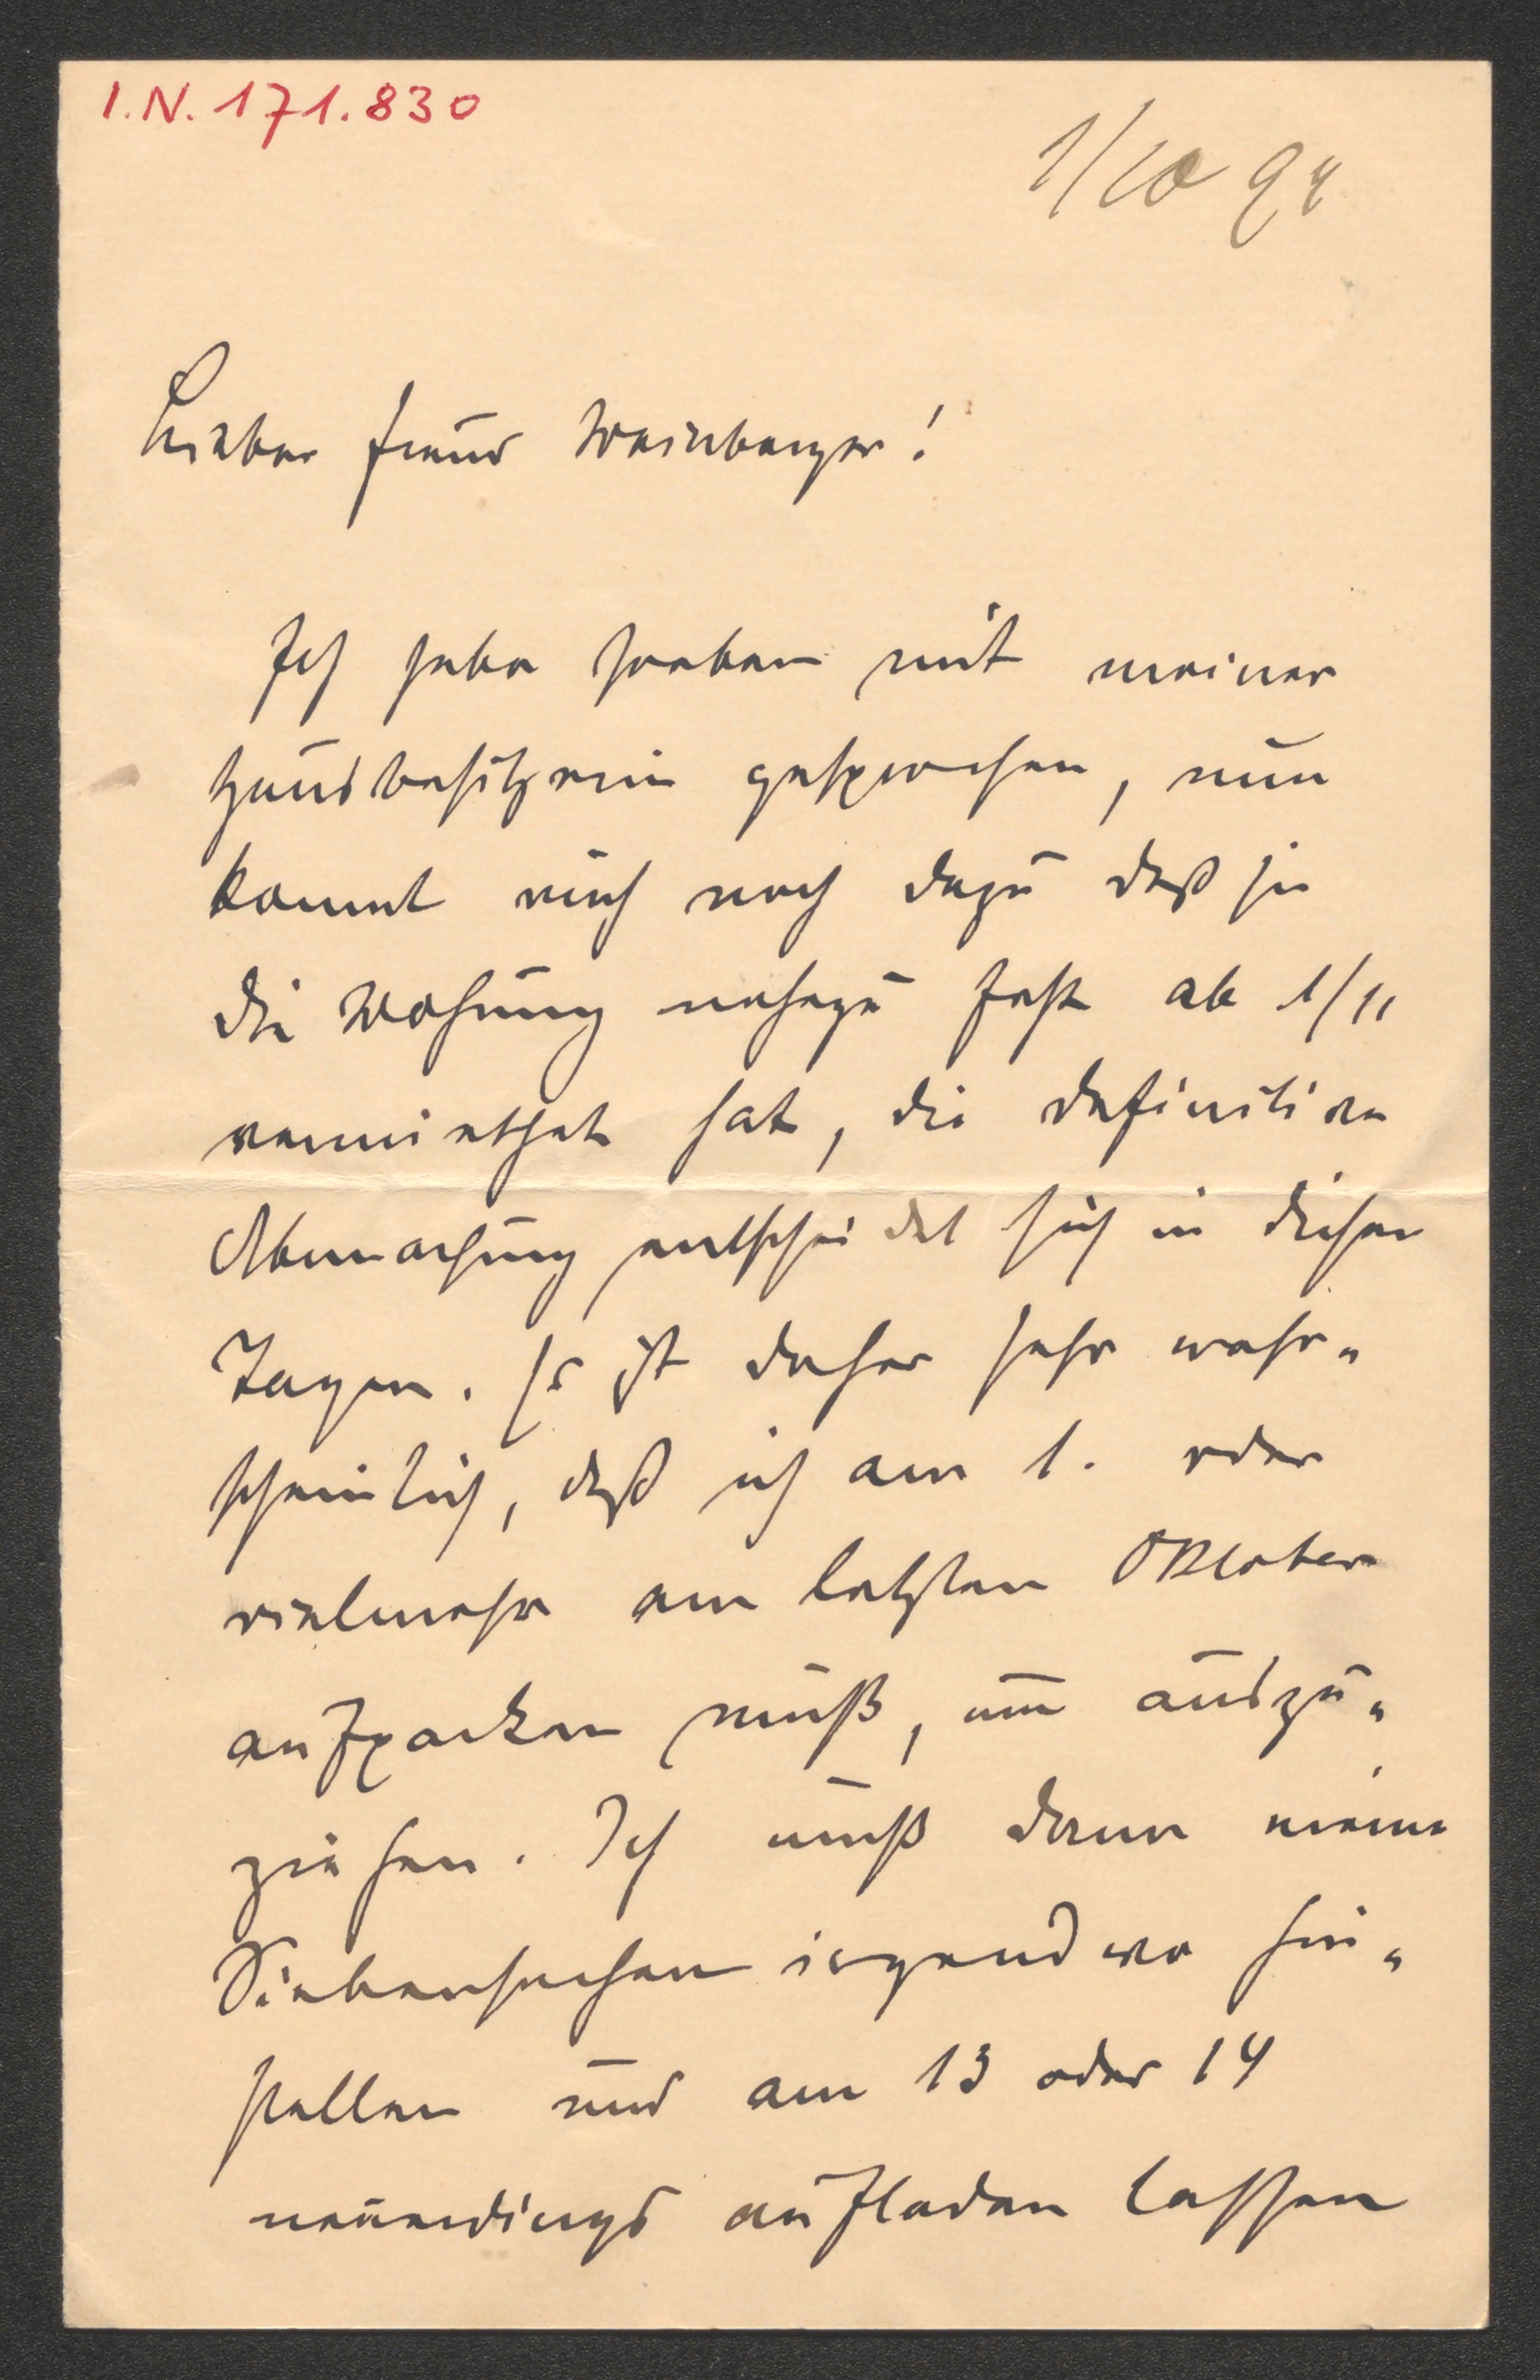 I.N. 171.830
1/10 94
Lieber Freund Weinberger!
Ich habe soeben mit meiner
Hausbesitzerin gesprochen, nun
kommt auch noch dazu daß sie
die Wohnung nahezu fest ab 1/11
vermiethet hat, die definitive
Abmachung entscheidet sich in diesen
Tagen. Es ist daher sehr wahr„
scheinlich, daß ich am 1. oder
vielmehr am letzten Oktober
aufpacken muß, um auszu„
ziehen. Ich muß dann meine
Siebensachen irgendwo hin„
stellen und am 13 oder 14
neuerdings aufladen lassen